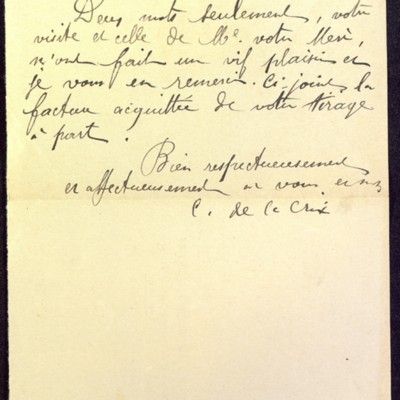 Deux mots seulement, votre
visite et celle de Me. votre Mère,
m'ont fait un vif plaisir et
je vous en remercie. Ci joint, la
facture acquittée de votre tirage
à part.
Bien respectueusement
et affectueusement à vous en
C. de la Croix